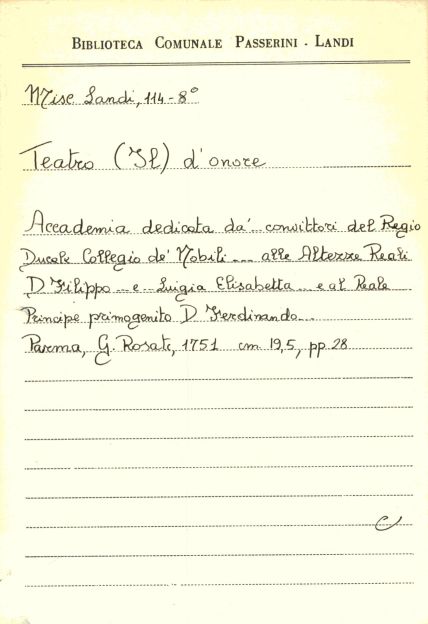 BIBLIOTECA COMUNALE PASSERINI - LANDI
Misc Landi, 114-8°
Teatro (Il) d'onore
Accademia dedicata da'... convittori del Regio
Ducale Collegio de' Nobili ... alle Altezze Reali
D Filippo ... e ... Luigia Elisabetta ... e al Reale
Principe primogenito D. Ferdinando...
Parma, G. Rosati, 1751 cm 19,5, pp 28